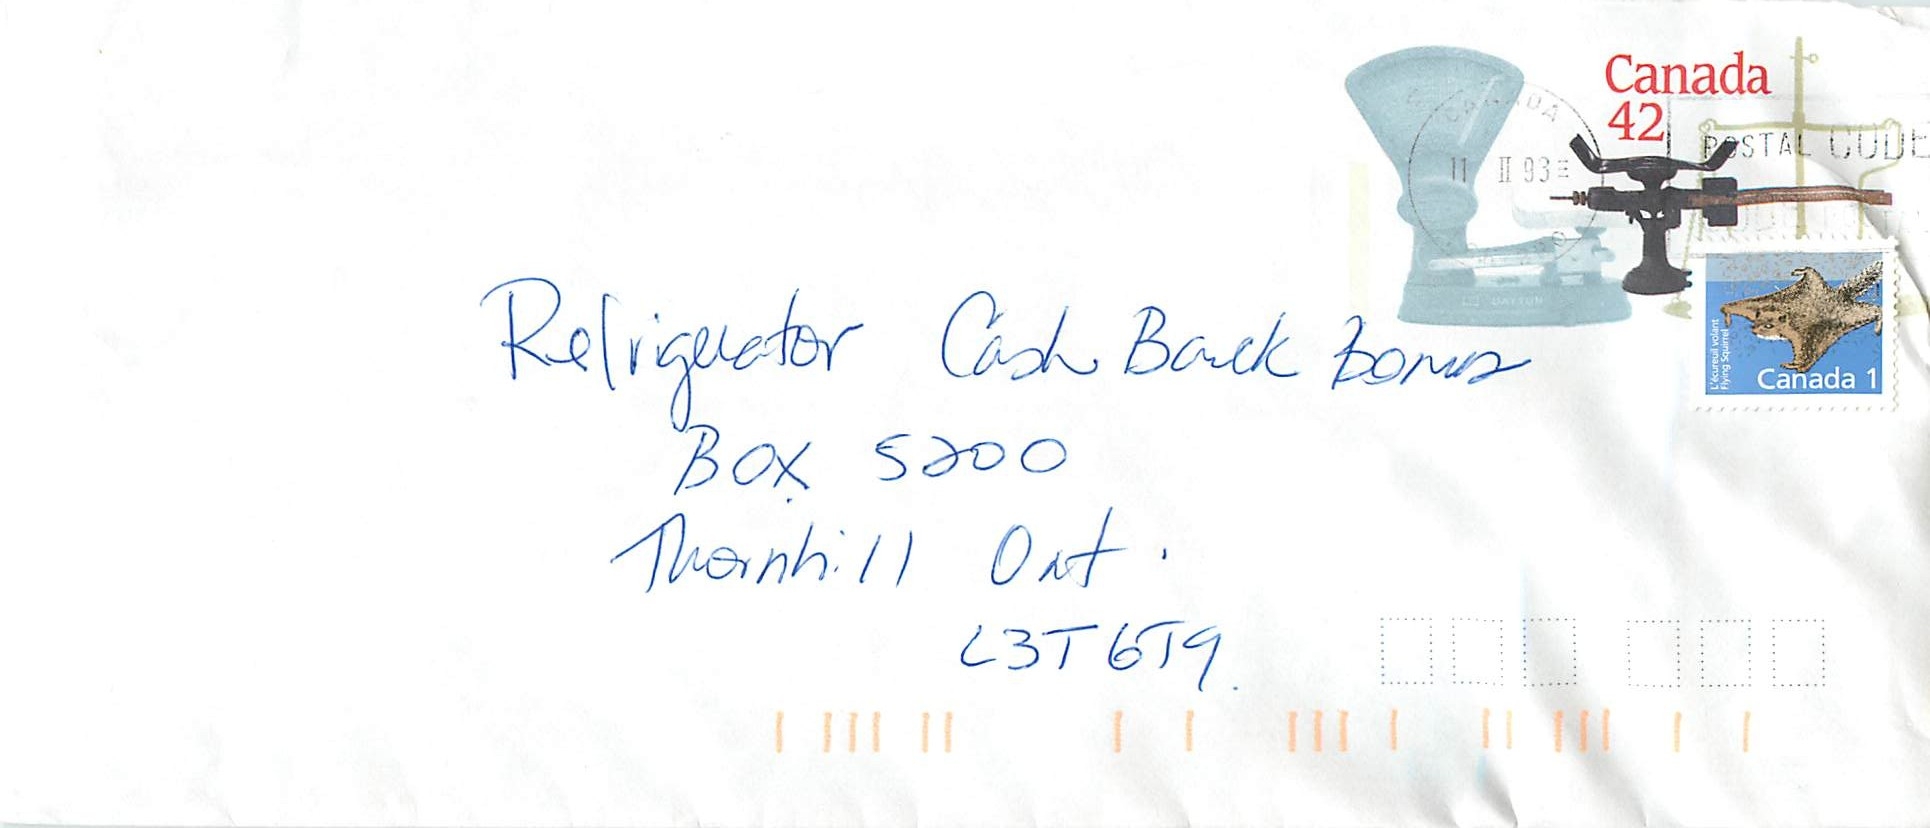 Canada
42
CANADA
11 II 93
POSTAL CODE
DAYTON
L'écureuil volant
Flying Squirrel
Canada 1
Refrigerator Cash Back Bonus
Box 5200
Thornhill Ont.
L3T 6T9.